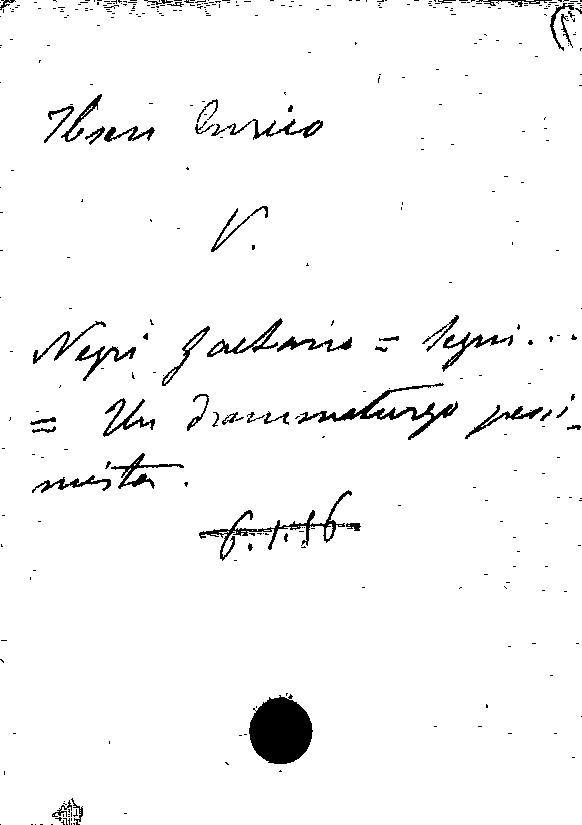 Ibsen Enrico
V.
Negri Gaetano = Segni...
= Un drammaturgo pessi-
mista.
6.1.16